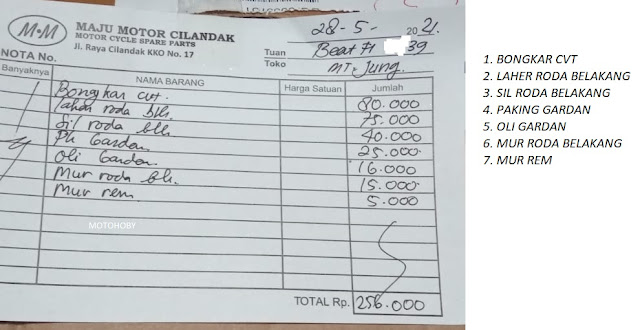 M·M
MAJU MOTOR CILANDAK
MOTOR CYCLE SPARE PARTS
Jl. Raya Cilandak KKO No. 17
28-5- 2021.
Tuan
Toko
Beat FI 39
MT. Jung.
NOTA No.
Banyaknya NAMA BARANG Harga Satuan Jumlah
Bongkar cvt. 80.000
Laher roda blk. 75.000
Sil roda blk 40.000
Pk Gardan 25.000
Oli Gardan. 16.000
Mur roda blk. 15.000
Mur rem. 5.000
MOTOHOBY
TOTAL Rp. 256.000
1. BONGKAR CVT
2. LAHER RODA BELAKANG
3. SIL RODA BELAKANG
4. PAKING GARDAN
5. OLI GARDAN
6. MUR RODA BELAKANG
7. MUR REM